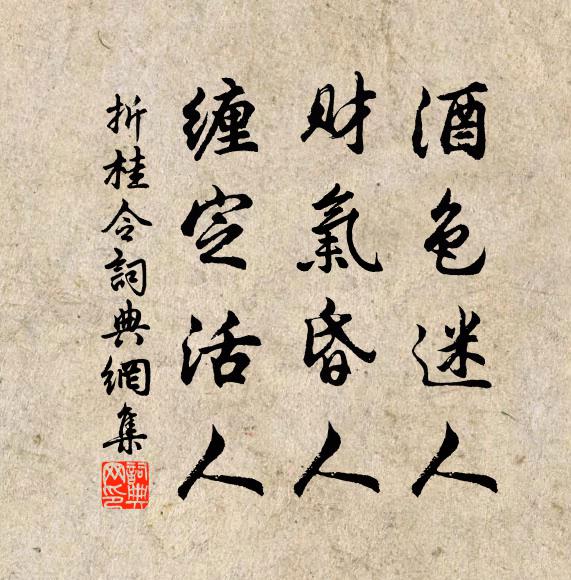 酒色迷人
財氣昏人
纏定活人
折桂令詞典網集
詞典
网印